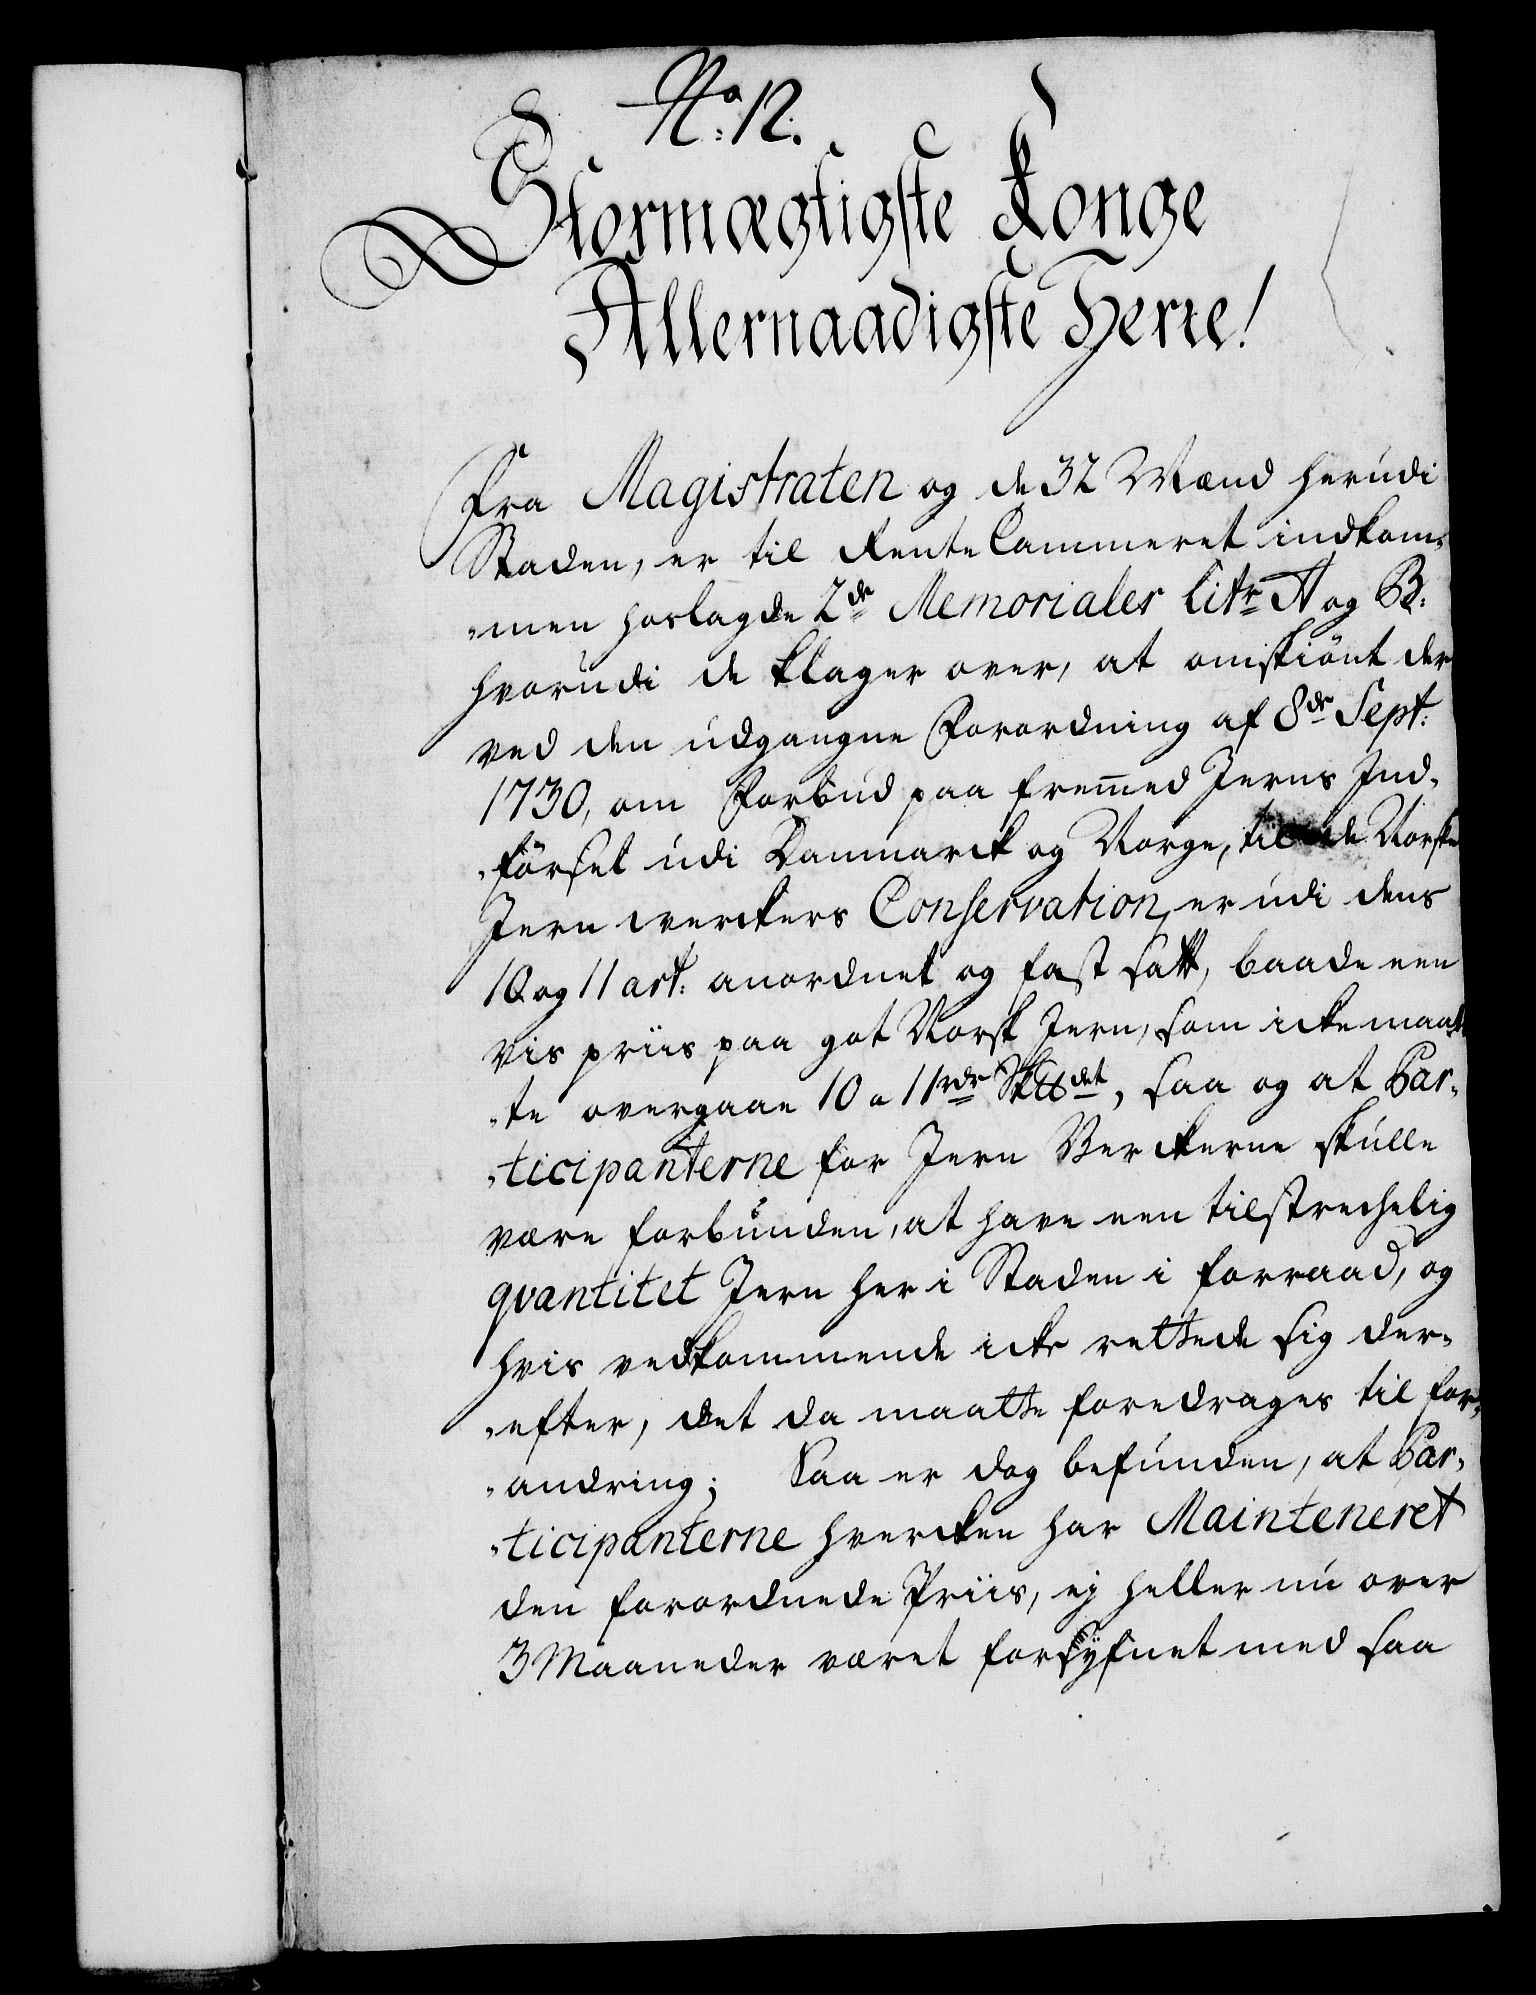 No: 12.
Stormægtigste Konge
Allernaadigste Herre!
Fra Magistraten og de 32 Mænd herudi
Staden, er til Rente Cammeret indkom-
-men hoslagde 2de Memorialer Litr A og B:
hvorudi de klager over, at omskiönt der
ved den udgangne Forordning af 8de Sept:
1730, om Forbud paa fremmed Jerns Ind-
-försel udi Danmarck og Norge, til de Norske
Jernwerckers Conservation, er udi dens
10 og 11 art: anordnet og fast satt, baade een
vis priis paa got Norsk Jern, som icke maat-
-te overgaae 10 a 11 rdr Sk℔det, saa og at Par-
-ticipanterne for Jern Verckerne skulle
være forbunden, at have een tilstreckelig
qvantitet Jern her i Staden i forraad, og
hvis vedkommende icke rettede sig der-
-efter, det da maatte foredrages til for-
-andring; Saa er dog befunden, at Par-
-ticipanterne hvercken har Mainteneret
den forordnede Priis, ej heller nu over
3 Maaneder været forsÿnet med saa